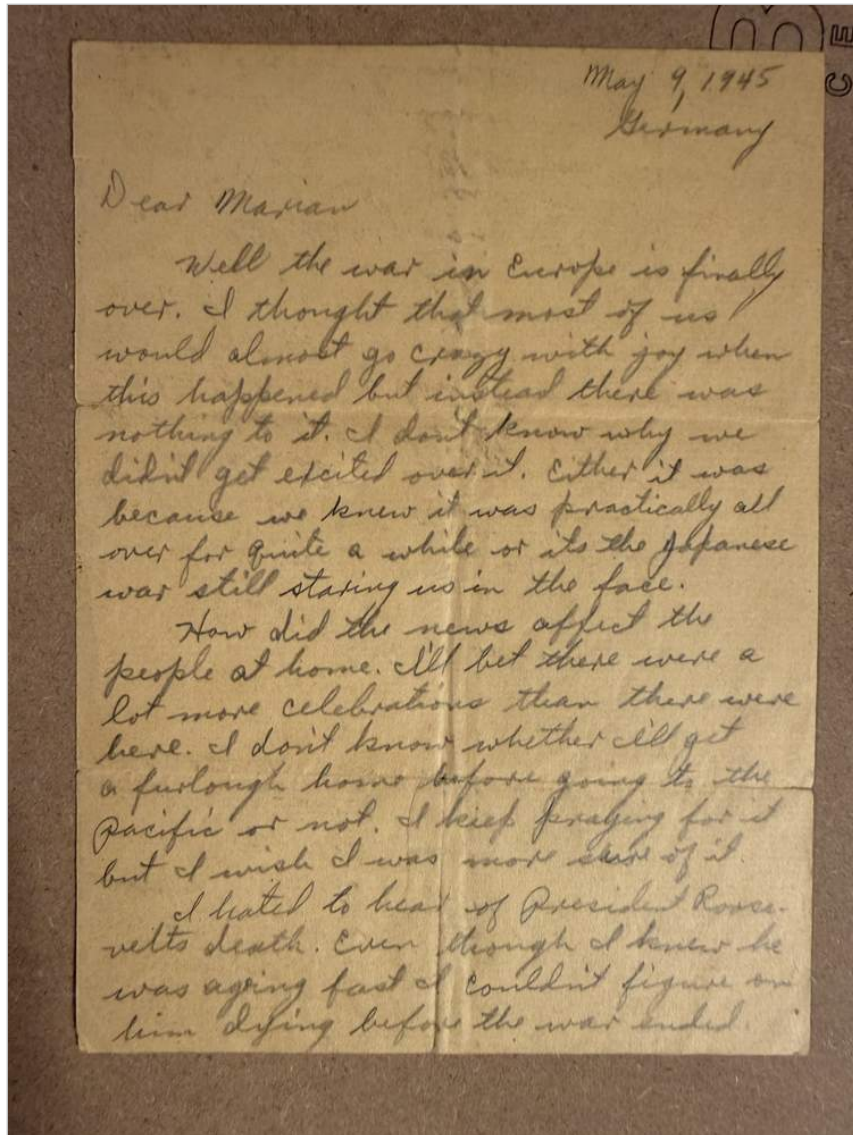 May 9, 1945
Germany
Dear Marian
Well the war in Europe is finally
over. I thought that most of us
would almost go crazy with joy when
this happened but instead there was
nothing to it. I don't know why we
didn't get excited over it. Either it was
because we knew it was practically all
over for quite a while or its the Japanese
war still staring us in the face.
How did the news affect the
people at home. I'll bet there were a
lot more celebrations than there were
here. I don't know whether I'll get
a furlough home before going to the
Pacific or not. I keep praying for it
but I wish I was more sure of it.
I hated to hear of President Roose-
velts death. Even though I knew he
was ageing fast I couldn't figure on
him dying before the war ended.